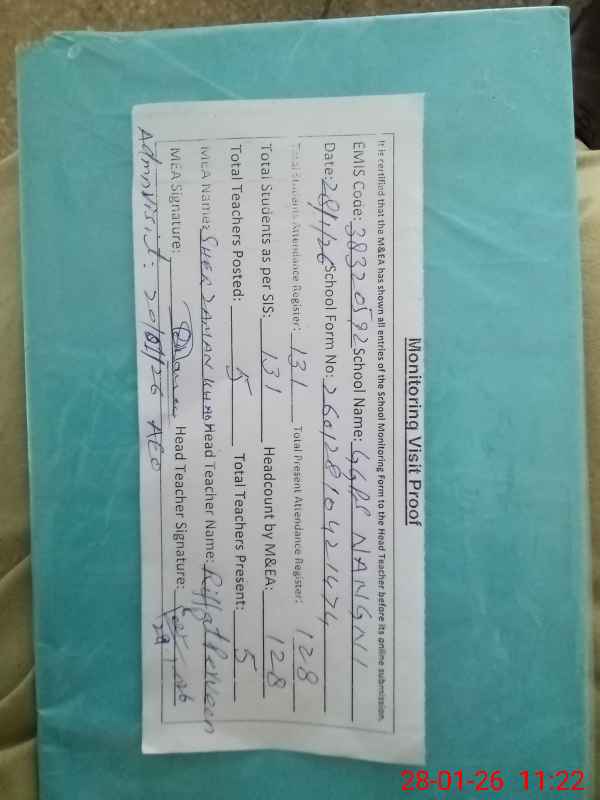 Monitoring Visit Proof
It is certified that the M&EA has shown all entries of the School Monitoring Form to the Head Teacher before its online submission.
EMIS Code: 38320592 School Name: GGPS NANGNI
Date: 28/1/26 School Form No: 26012810421474
Total Students Attendance Register: 131 Total Present Attendance Register: 128
Total Students as per SIS: 131 Headcount by M&EA: 128
Total Teachers Posted: 5 Total Teachers Present: 5
MEA Name: SHER ZAMAN Head Teacher Name: Riffat Perveen
MEA Signature: Head Teacher Signature:
Admn Visit: 20/01/26 AEO
28-01-26 11:22